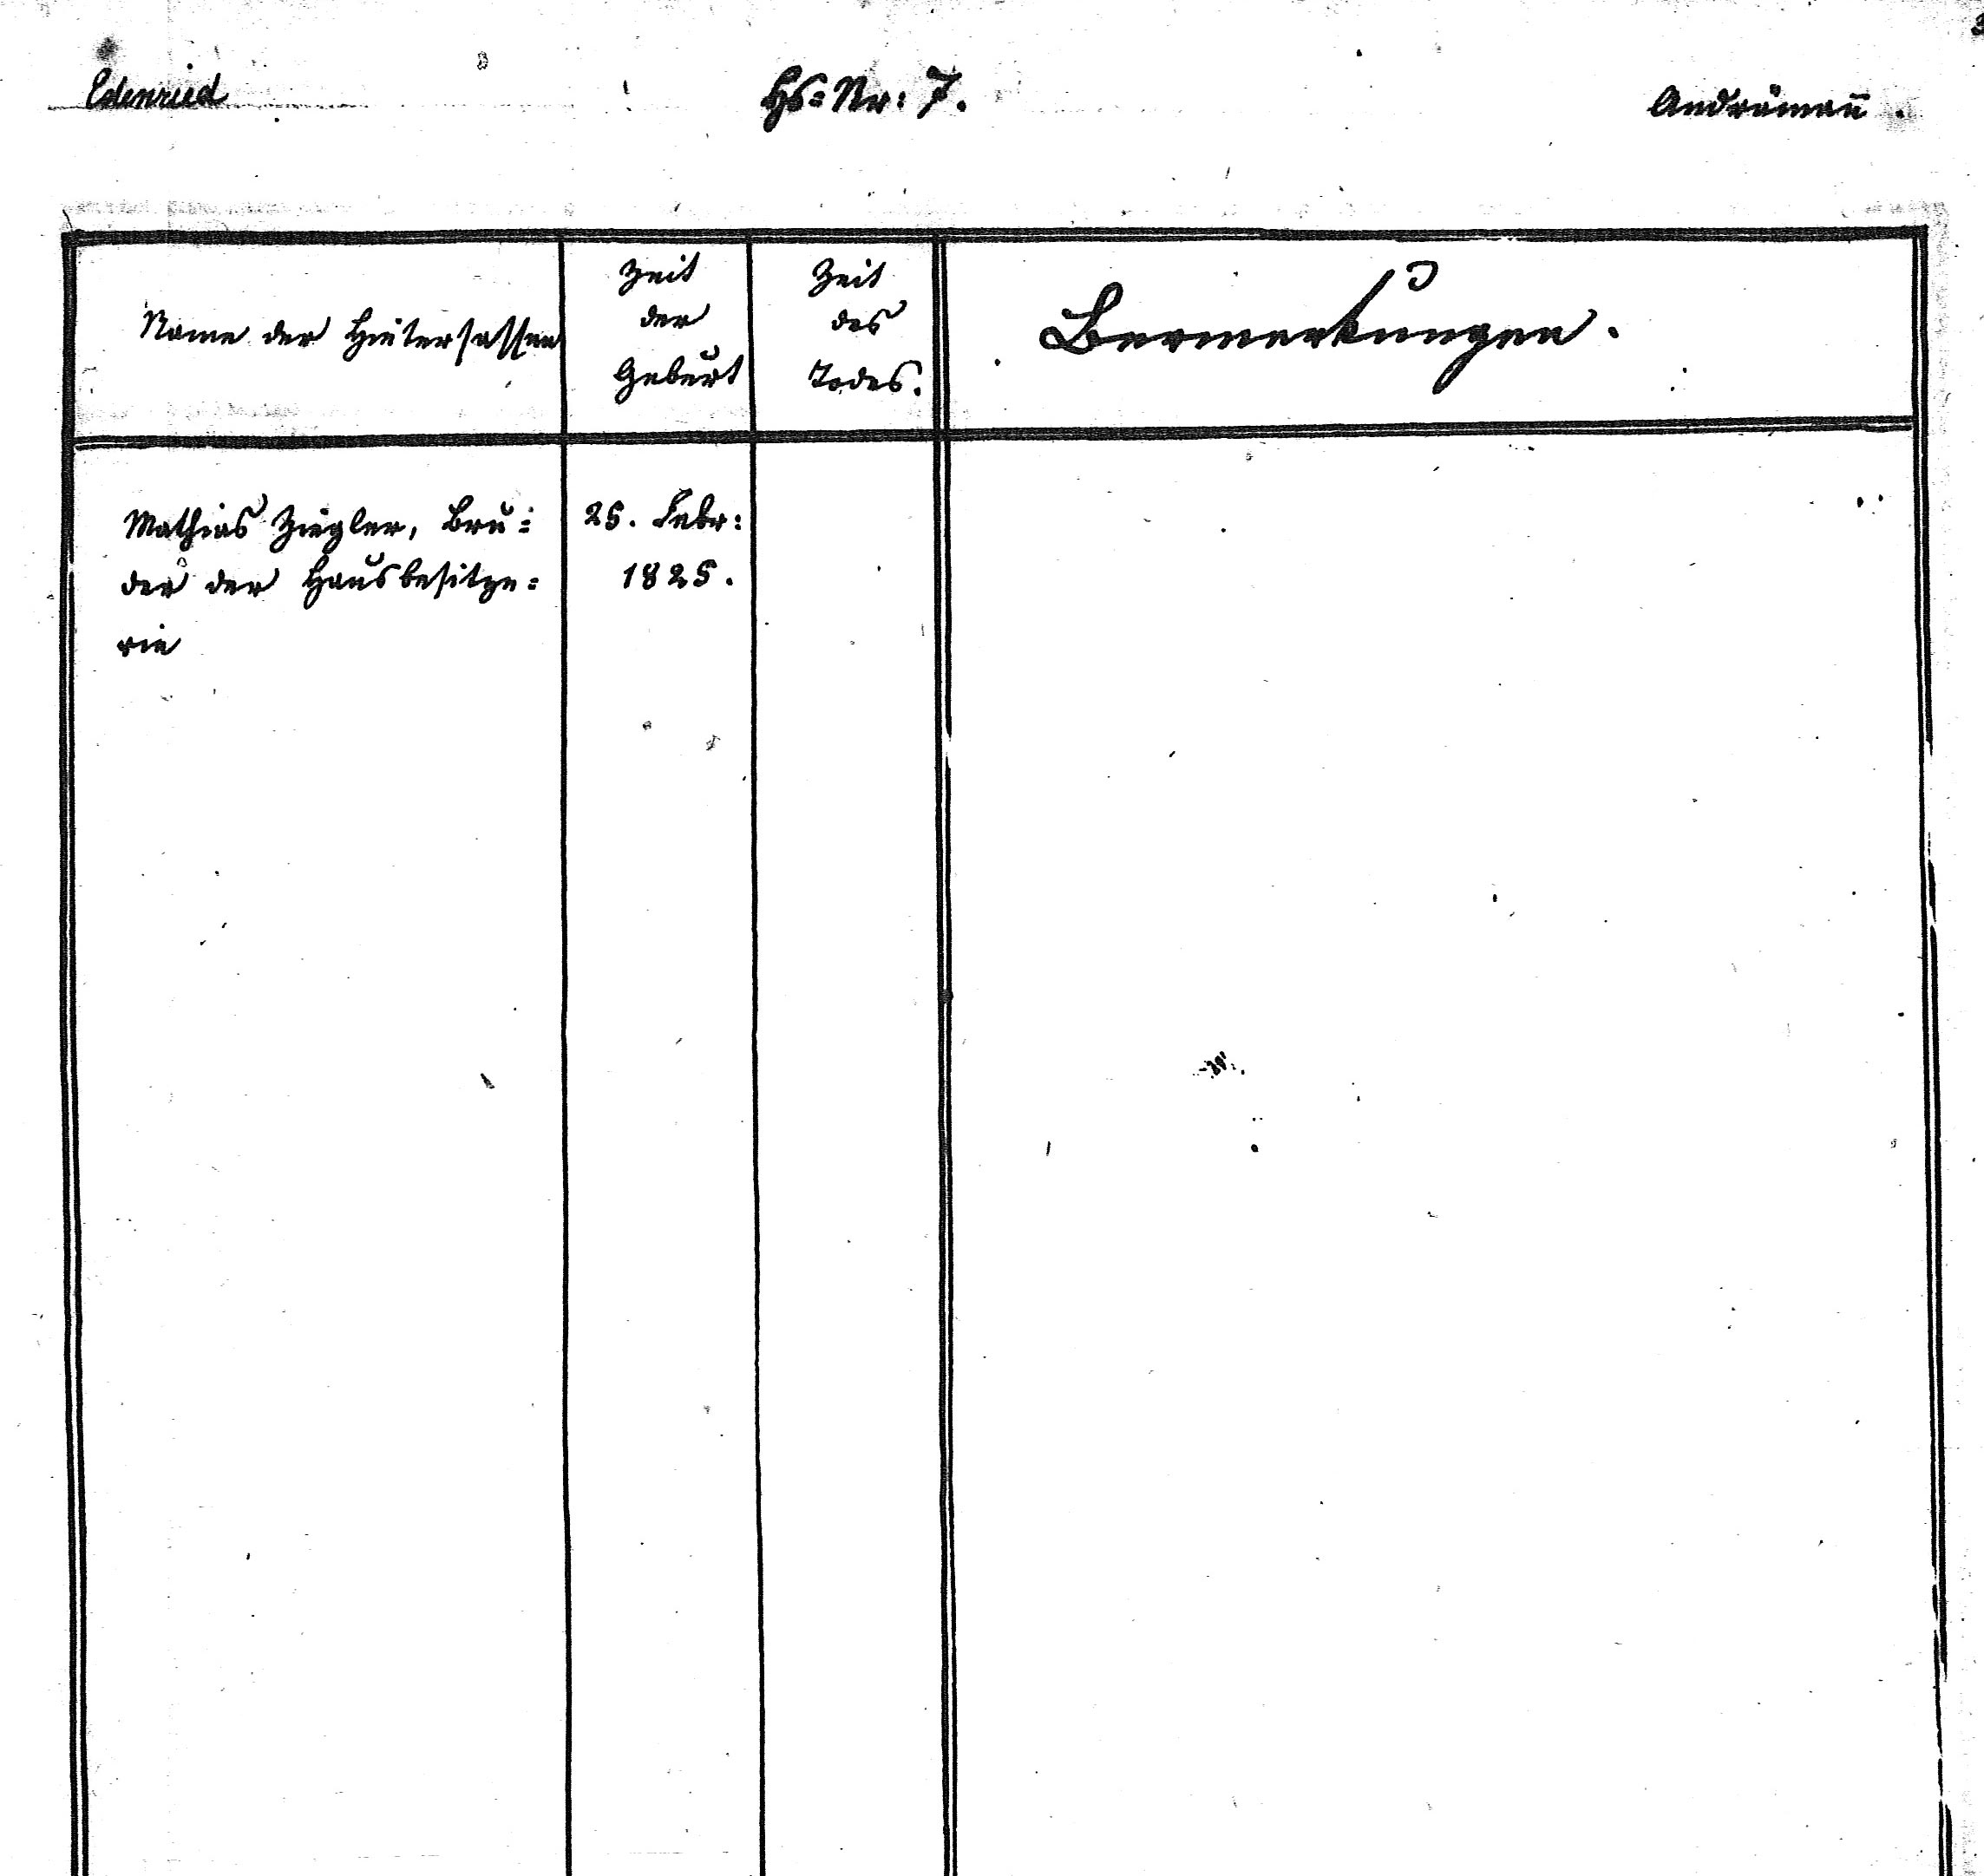 Edenried
Hs=Nr: 7.
Andrämañ.
Name der Hintersassen
Zeit
der
Geburt
Zeit
des
Todes.
Bemerkungen.
Mathias Ziegler, Bru=
der der Hausbesitze=
rin
25. Febr:
1825.